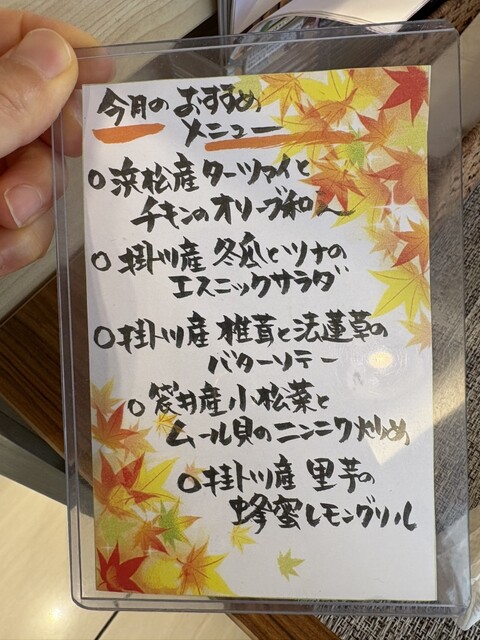 今月のおすすめ
メニュー
○浜松産ターツァイと
チキンのオリーブ和へ
○掛川産冬瓜とツナの
エスニックサラダ
○掛川産椎茸と法蓮草の
バターソテー
○袋井産小松菜と
ムール貝のニンニク炒め
○掛川産里芋の
蜂蜜レモングリル